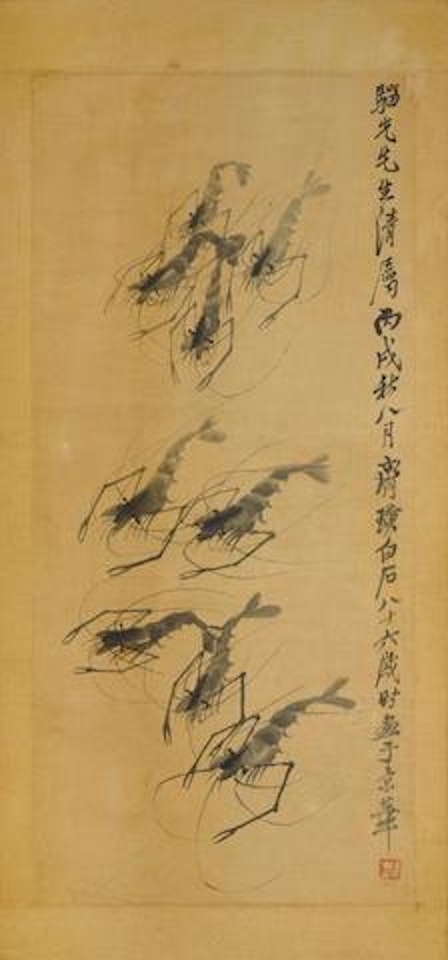 光先生清属丙戌秋八月齊璜白石八十六歲時畫于京華